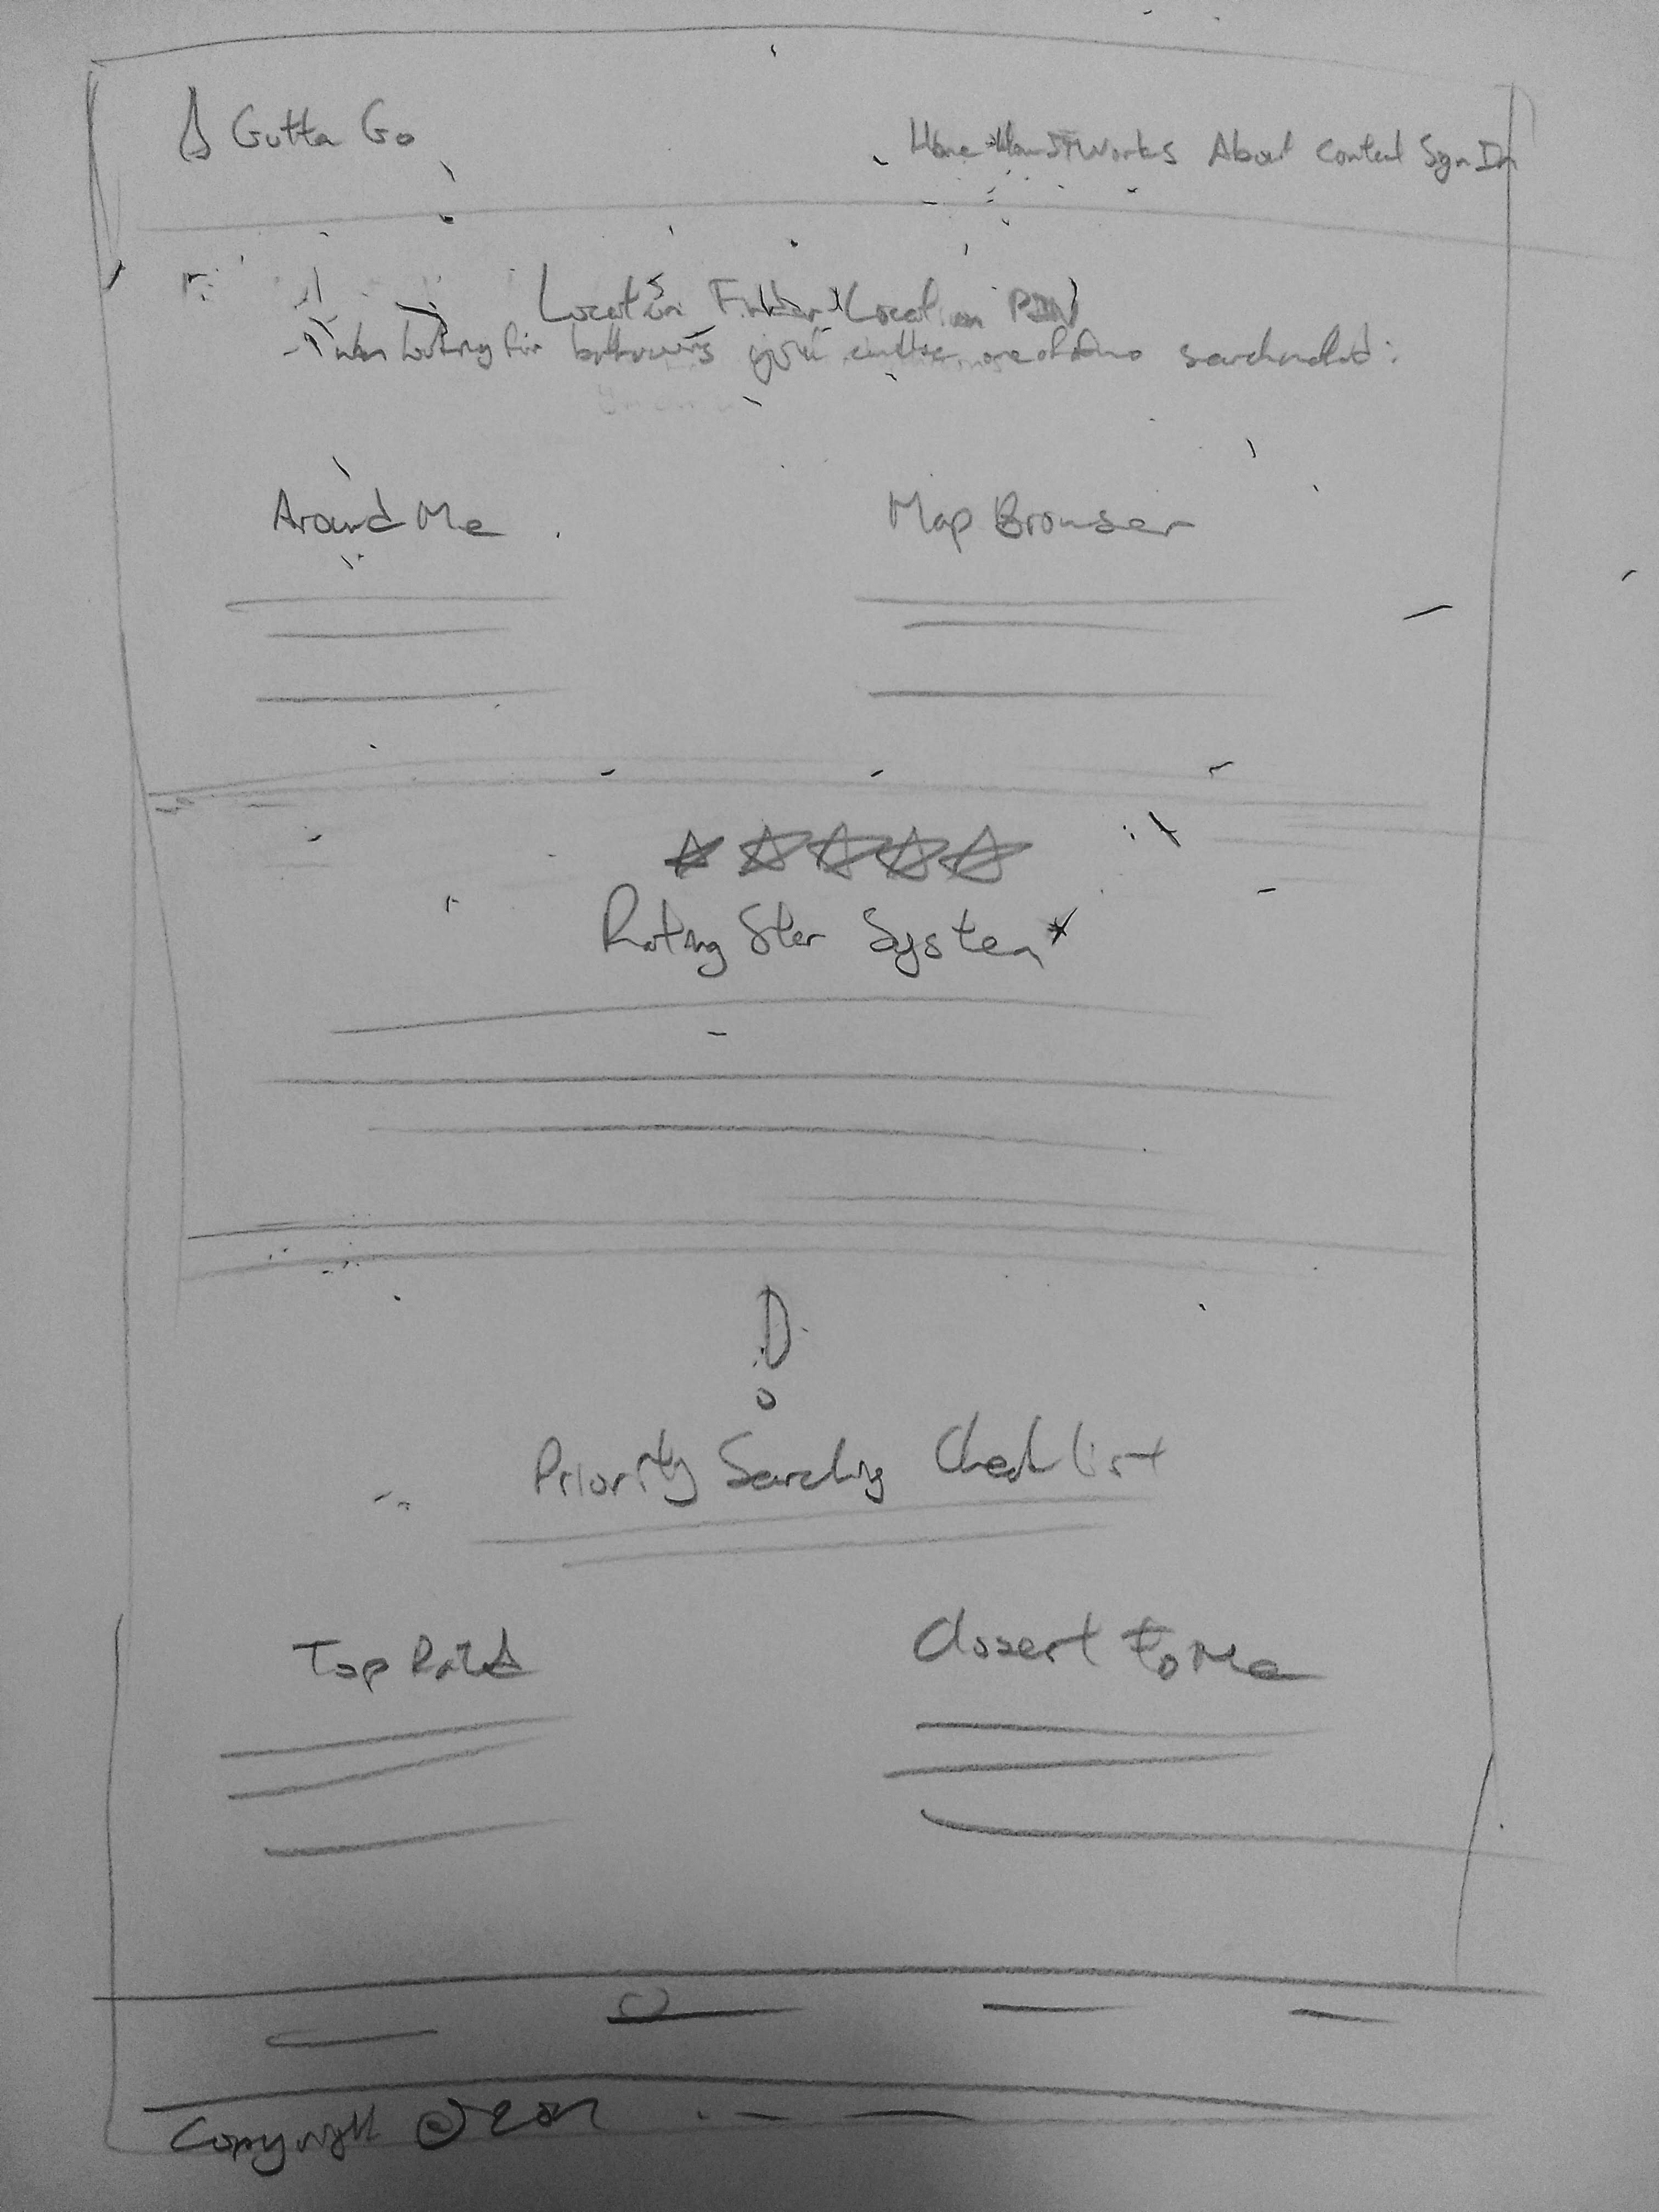 Gutta Go
Home How It Works About Contact Sign In
Location Finder/Location PIN
When looking for bathrooms you one of searchmethod:
Around Me
Map Browser
Rating Star System*
Priority Searching Checklist
Top Rated
Closest to Me
Copyright ©